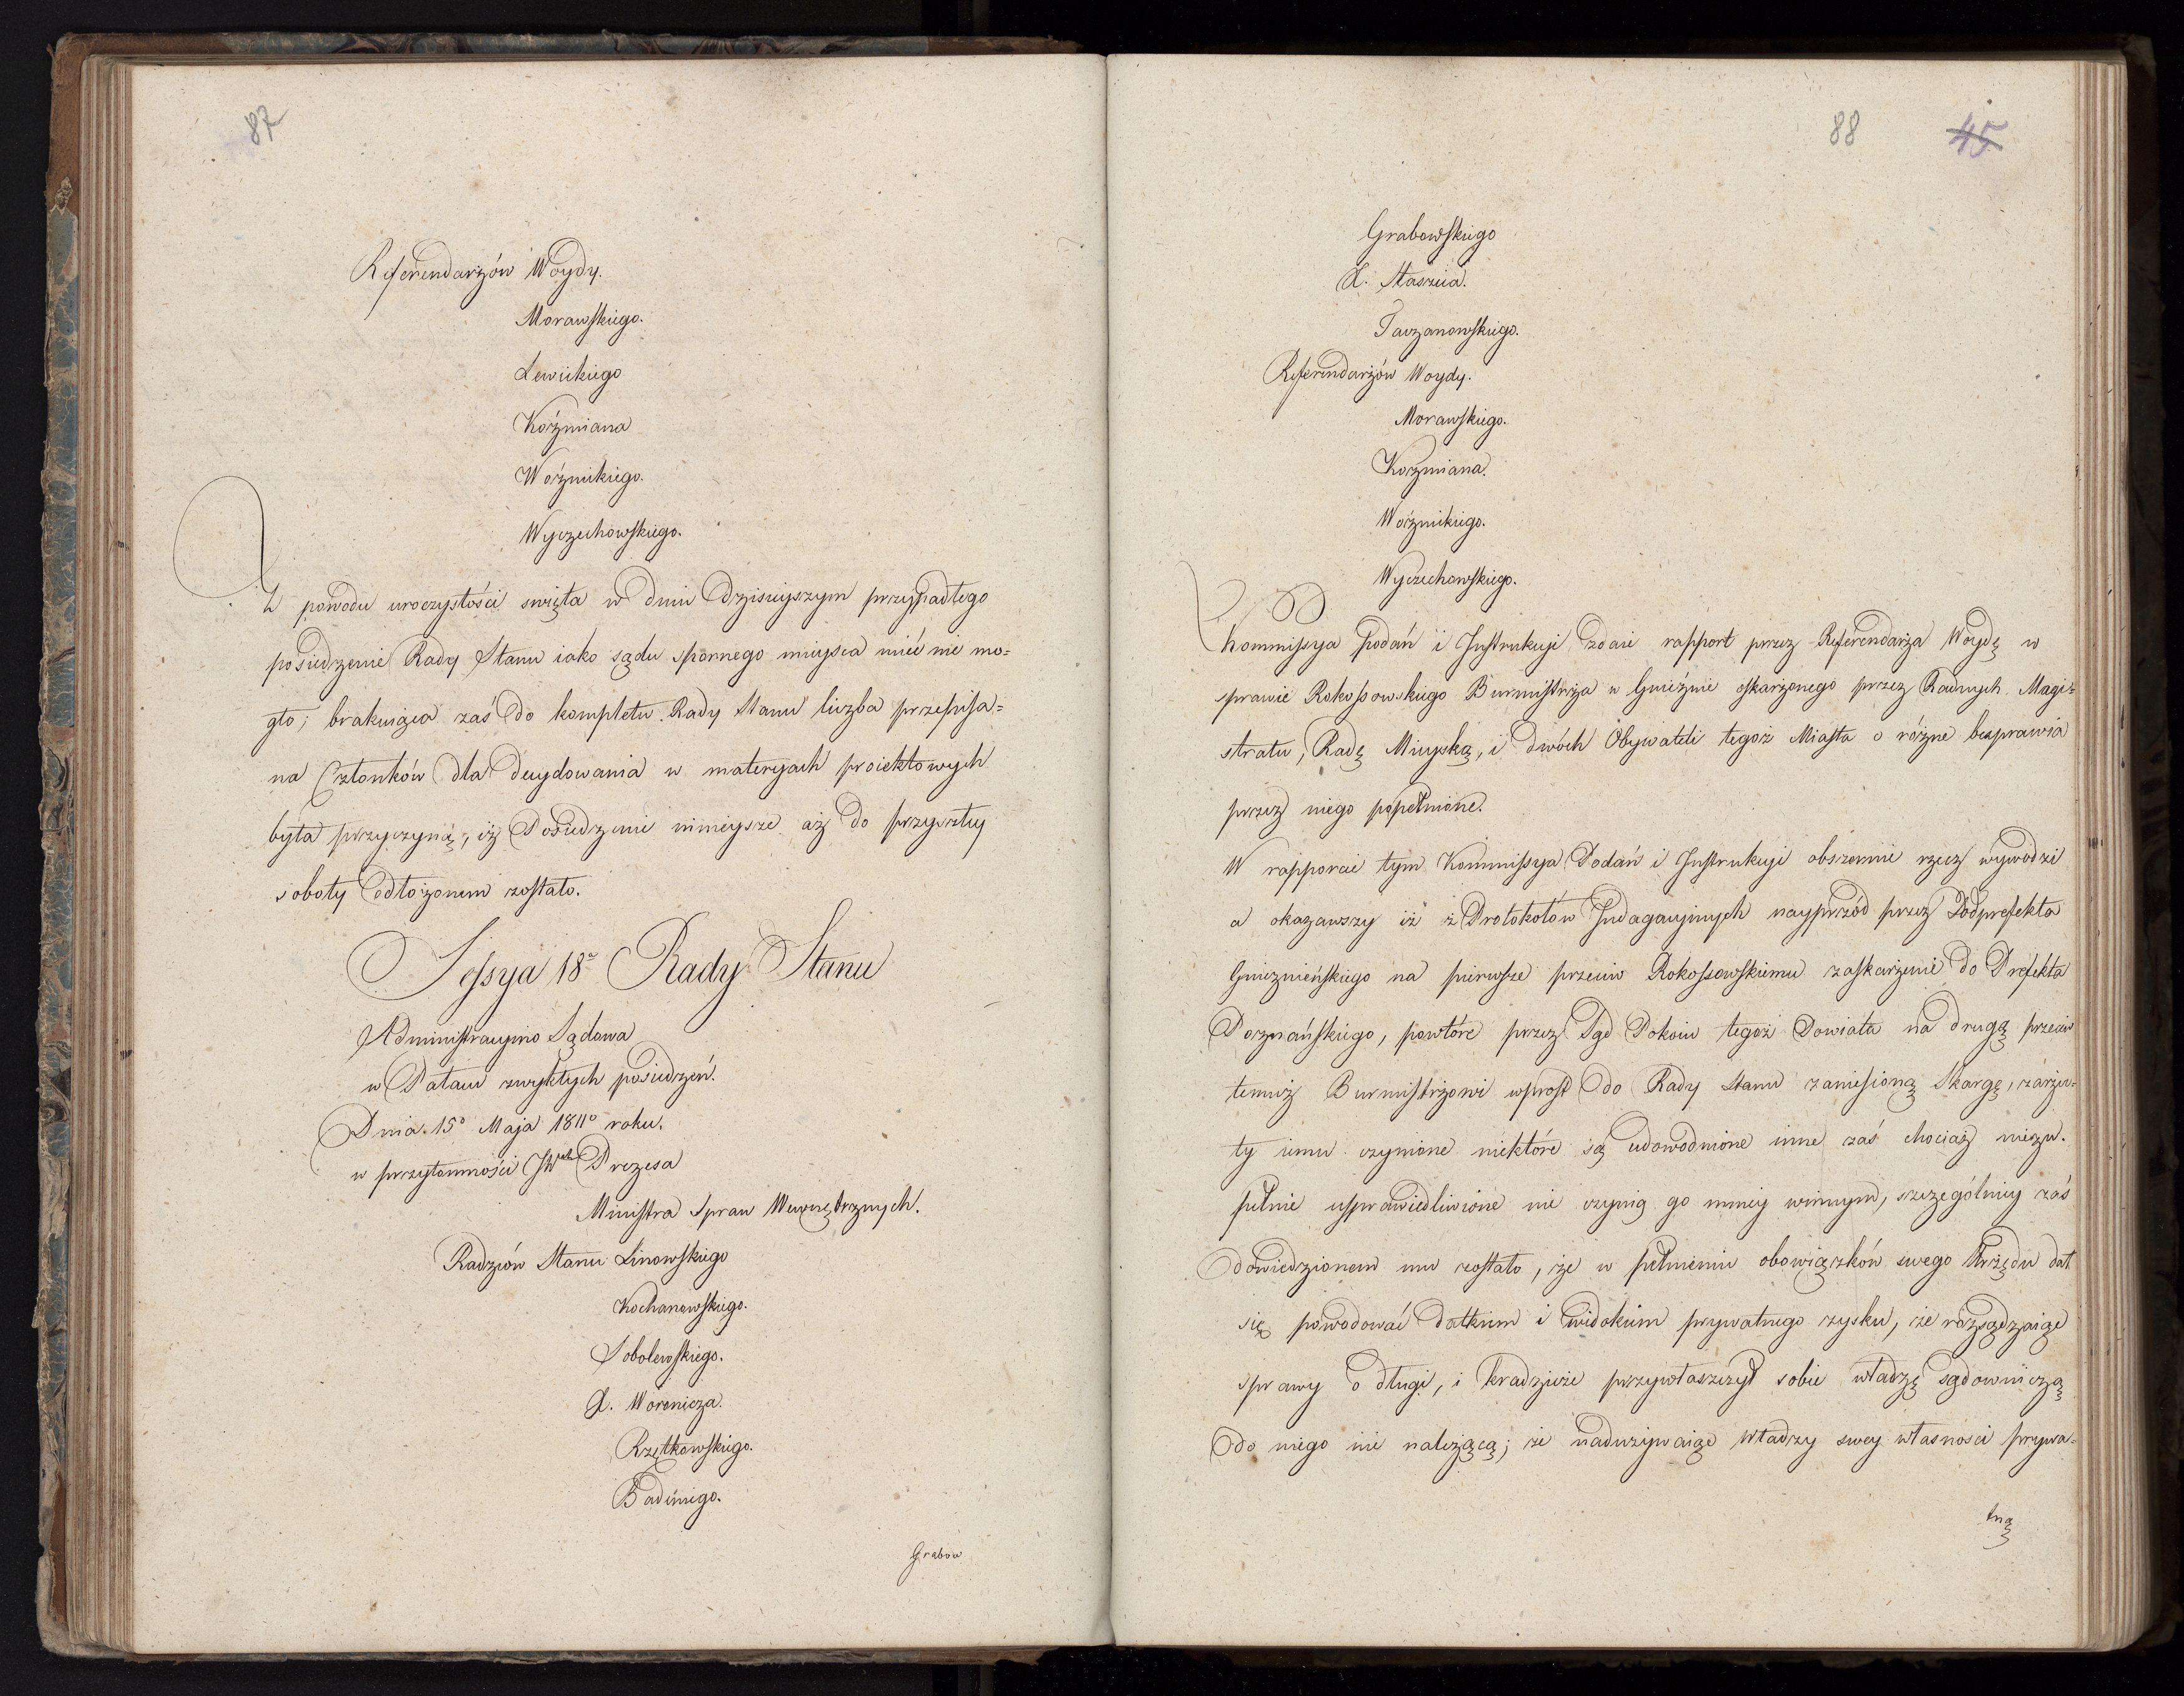 87
Referendarzów Woydy.
Morawskiego.
Lewickiego
Koźmiana
Woźnickiego.
Wyczechowskiego.
Z powodu uroczystości swięta w dniu dzisieyszym przypadłego
posiedzenie Rady Stanu iako sądu spornego mieysca mieć nie mo=
gło; brakuiąca zaś do kompletu Rady Stanu liczba przepisa=
na Członków dla decydowania w materyach proiektowych
była przyczyną, iż Posiedzenie ninieysze aż do przyszłey
soboty odłożonem zostało.
Sessya 18a Rady Stanu
Administracyino Sądowa
w Pałacu zwykłych posiedzeń.
Dnia 15o Maja 1811o roku.
w przytomności JWch Prezesa
Ministra Spraw Wewnętrznych.
Radzców Stanu Linowskiego
Kochanowskiego.
Sobolewskiego.
X. Woronicza.
Rzętkowskiego.
Badeniego.
Grabow
88
45
Grabowskiego
X. Staszica.
Taczanowskiego.
Referendarzów Woydy.
Morawskiego.
Kozmiana.
Woźnickiego.
Wyczechowskiego.
Kommissya Podań i Instrukcyi zdaie rapport przez Referendarza Woydę w
sprawie Rokossowskiego Burmistrza w Gnieźnie oskarżonego przez Radnych Magi=
stratu, Radę Mieyską, i dwóch Obywateli tegoż Miasta o różne bezprawia
przez niego popełnione.
W rapporcie tym Kommissya Podań i Instrukcyi obszernie rzecz wywodzi
a okazawszy iż z Protokołów Indagacyinych nayprzód przez Podprefekta
Gnieznieńskiego na pierwsze przeciw Rokossowskiemu zaskarżenie do Prefekta
Poznańskiego, powtóre przez Sąd Pokoiu tegoż Powiatu na drugą przeciw
temuż Burmistrzowi wprost do Rady Stanu zaniesioną Skargę, zarzu=
ty iemu czynione niektóre są udowodnione inne zaś chociaż niezu=
pełnie usprawiedliwione nie czynią go mniey winnym, szczególniey zaś
dowiedzionem mu zostało, że w pełnieniu obowiązków swego Urzędu dał
się powodować datkiem i widokiem prywatnego zysku, że rozsądzaiąc
sprawy o długi, i kradzieże przywłaszczył sobie władzę sądowniczą
do niego nie należącą; że nadużywaiąc władzy swey własności prywa=
tną